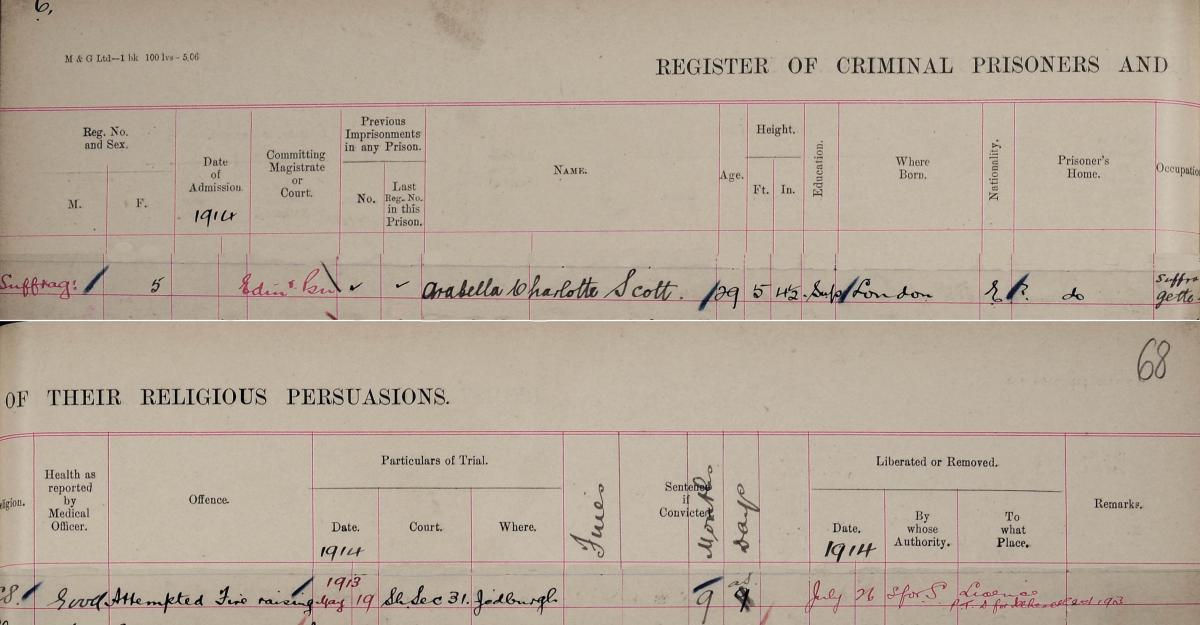 6,
M & G Ltd—1 bk 100 lvs - 5.06
REGISTER OF CRIMINAL PRISONERS AND
Reg. No.
and Sex.
M.
F.
Date
of
Admission.
1914
Committing
Magistrate
or
Court.
Previous
Imprisonments
in any Prison.
No.
Last
Reg. No.
in this
Prison.
NAME.
Age.
Height.
Ft.
In.
Education.
Where
Born.
Nationality.
Prisoner's
Home.
Occupatio
Suffrag: 5 Edinr Arabella Charlotte Scott. 29 5 4½ Sup London E do Suffra
gette
68
OF THEIR RELIGIOUS PERSUASIONS.
ligion.
Health as
reported
by
Medical
Officer.
Offence.
Particulars of Trial.
Date.
1914
Court.
Where.
Fines
Sentence
if
Convicted
Months
Days
Liberated or Removed.
Date.
1914
By
whose
Authority.
To
what
Place.
Remarks.
1913
Good Attempted Fire raising May 19 Sh. Sec 31. Jedburgh 9 July 26 S for S. License